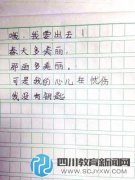 哦，我要出去！
春天多美丽，
那画多美丽。
可是我的心儿在忧伤
我没有钥匙
四川教育新闻网